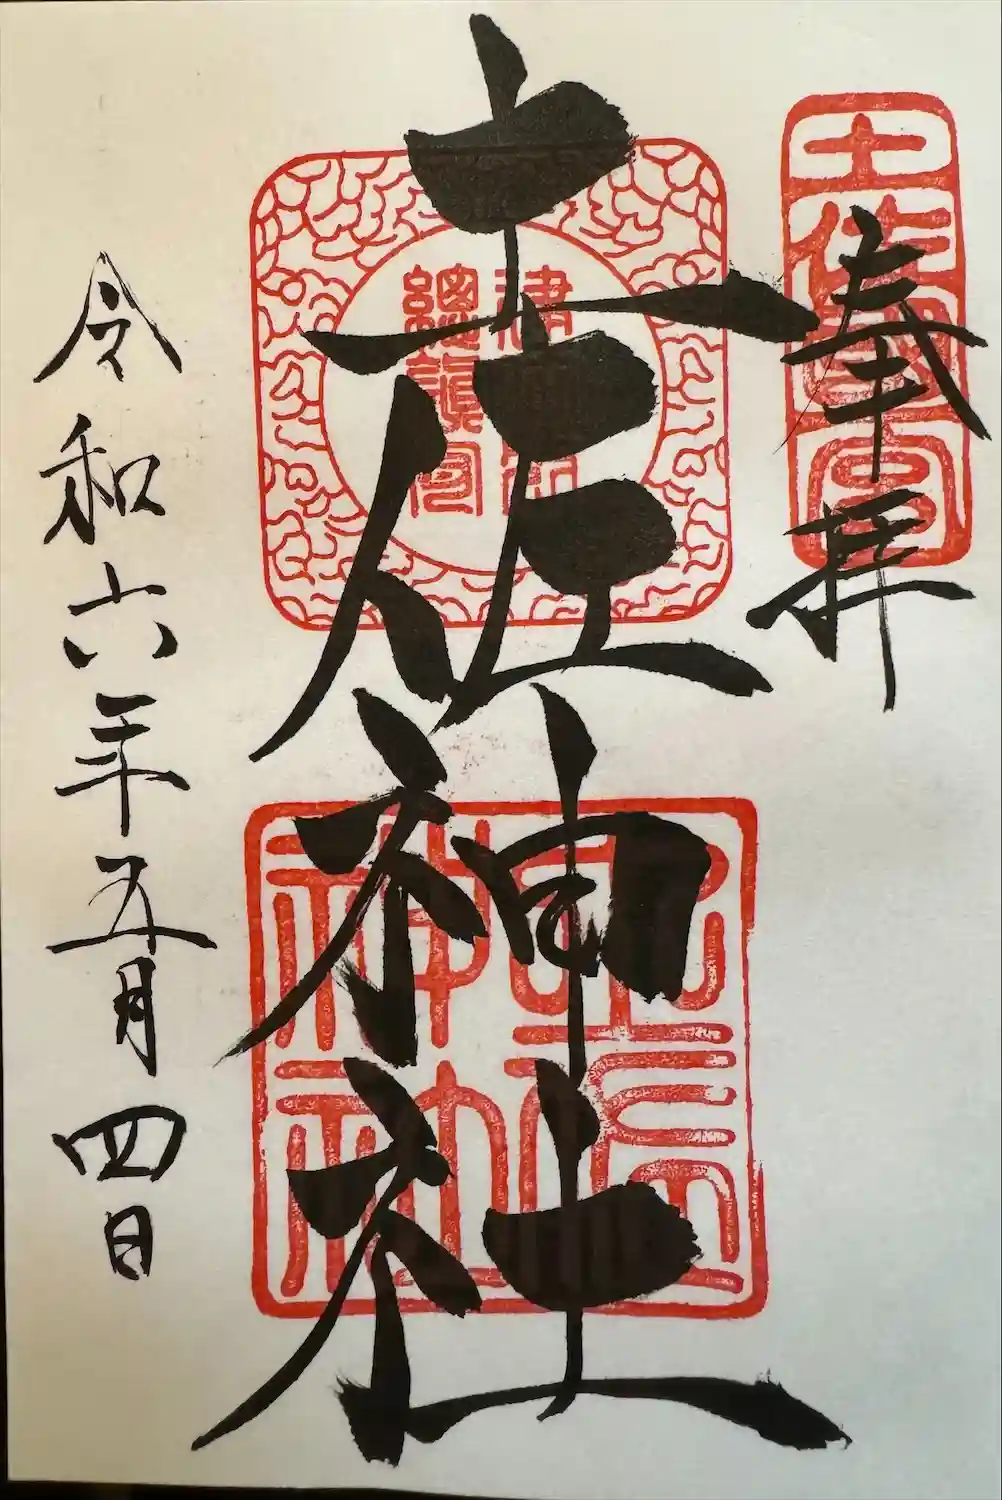 奉拝
土佐國一宮
土佐神社
總鎮守
土佐
神社
令和六年五月四日